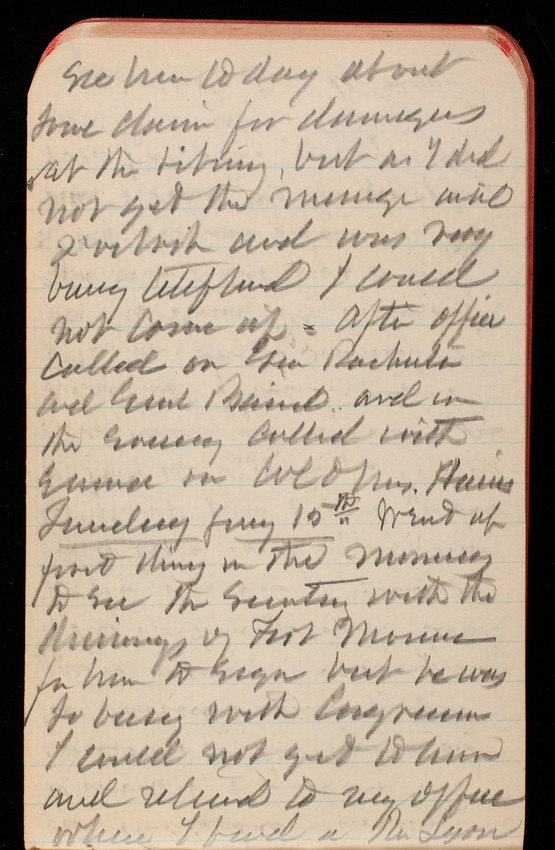 see him to day about
some claim for damages
at the , but as I did
not get the message until
2 o'clock and was very
busy I could
not come up = After office
called on Gen
and Genl Baird. and in
the evening called with
on Col & Mrs.
Tuesday Jany 15th Went up
first thing in the morning
to see the Secretary with the
drawings of Fort Monroe
for him to sign but he was
so busy with Congressmen
I could not get to him
and returned to my office
where I found a Mr Lyon